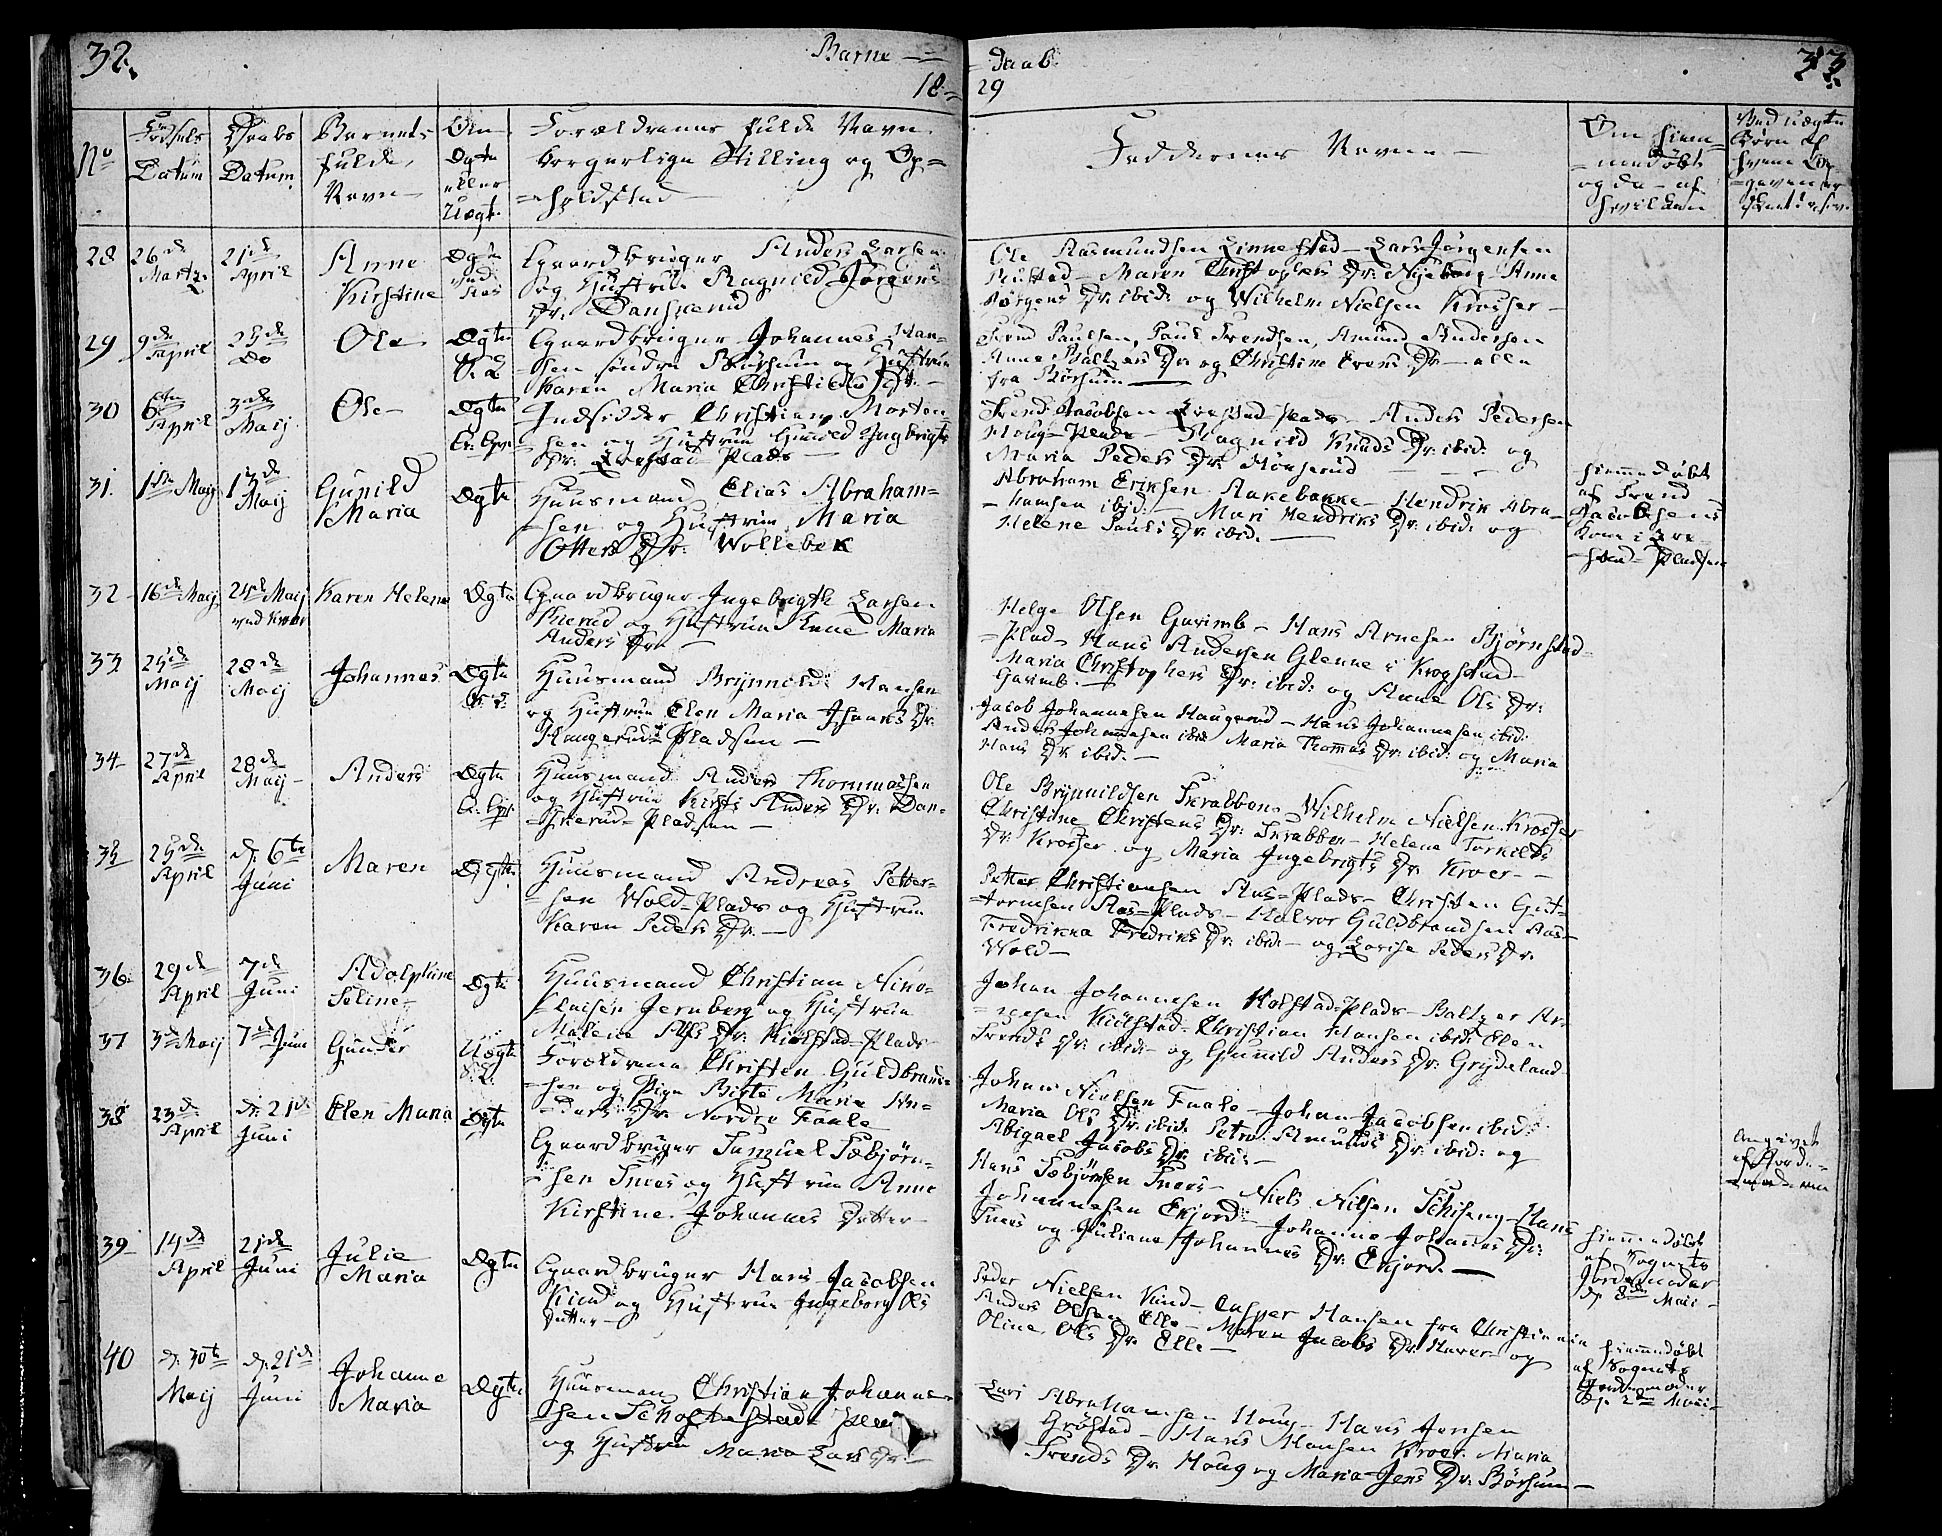 32.
Barne =
18 =
No
Fødsels
Datum
Daabs
Datum
Barnets
fulde
Navn
Om
Ægte
eller
Uægt.
Forældrenes fulde Navn
borgerlige Stilling og Op=
=holdsted
28
26de
Marts
21de
April
Anne
Kirstine
Ægte
ved
Aas
Gaardbruger Anders Larsen
og Hustrue Ragnild Jørgens
Dr. Danskerud
29
9de
April
25de
do
Ole
Ægte
Gaardbruger Johannes Han=
=sen søndre Børsum og Hustrue
Karen Maria Christians Dr.
30
6te
April
3de
Maij
Ole
Ægte
Indsidder Christian Morten
=sen og Hustrue Gunild Ingbrigts
Dr. Plads
31.
1ste Maij
13de
Maij
Gunild
Maria
Ægte
Huusmand Elias Abraham=
=sen og Hustrue Maria
Otters Dr. Wollebek
32
16de Maij
24de Maij
ved Kroer
Karen Helene
Ægte
Gaardbruger Ingebrigth Larsen
og Hustrue Anne Maria
Anders Dr.
33
25de
Maij
28de
Maij
Johannes
Ægte
Huusmand Brynnild Hansen
og Hustrue Elen Maria Dr.
Haugerud=Pladsen
34
27de
April
28de
Maij
Anders
Ægte
Huusmand Anders Thommassen
og Hustrue Kirsti Anders Dr. Dan=
=skerud=Pladsen
35
25de
April
d. 6te
Juni
Maren
Ægte
Huusmand Andreas Petter=
=sen Wold=Plads og Hustrue
Karen Peders Dr.
36
29de
April
7de
Juni
Adolphine
Seline
Ægte
Huusmand Christian Nico=
=laisen Jernberg og Hustrue
Malene Dr. Kiølstad=Plads
37
3de Maij
7de Juni
Gunder
Uægte
Forældrene Christen Guldbrand=
=sen og Pige Birte Maria An=
=ders Dr. Nordre Faale
38
23de
April
d. 21de
Juni
Elen Maria
Ægte
Gaardbruger Samuel Tæbjørn=
=sen Sneis og Hustrue Anne
Kirstine Johannes Datter
39
14de
April
21de
Juni
Julie
Maria
Ægte
Gaardbruger Hans Jacobsen
Kind og Hustrue Ingeborg Ols
Datter
40
d. 30te
Maij
d. 21de
Juni
Johanne
Maria
Ægte
Huusmand Christian Johanne=
=sen
og Hustrue Maria Lars Dr.
= Daab
29
33.
Faddernes Navne
Om hiem=
=medøbt
og da af
hvilken
Ved uægte
Børn af
hvem
Ole Rasmundsen Linnestad Lars Jørgensen
Rustad Maren Christophers Dr. Nyeborg Anne
Jørgens Dr. ibid: og Wilhelm Nielsen Krosser
Trend Paulsen, Paul Trendsen, Amund Andersen
Anne Baltzers Dr. og Christine Evens Dr. alle
fra Børsum
Trend Jacobsen Plads Anders Pedersen
Houg=Plads Ragnild Knuds Dr. ibid: og
Maria Peders Dr.
Abraham Eriksen Aakebakke Hendrik Abra=
=hamsen ibid: Mari Hendriks Dr. ibid: og
Helene Pauls Dr. ibid.
hiemmedøbt
af Trend
Jacobsens
Kone i
=stad=Pladsen
Helge Olsen Garimb Hans Arnesen Bjørnstad
=Plad Hans Andersen Glenne i Krogstad
Maria Christophers Dr. ibid: og Anne Ols Dr.
Garimb.
Jacob Johannesen Haugerud Hans Johannesen ibid:
Anders Johannesen ibid: Maria Thomas Dr. ibid: og Maria
Hans Dr. ibid.
Ole Brynnildsen Skrabben Wilhelm Nielsen Krosser
Christine Christens Dr. Skrabben Helene Torkilds
Dr. Krosser og Maria Ingebrigts Dr. Kroer
Petter Christiansen Aas=Plads Christen Gut=
=tormsen Aas=Plads Halvor Guldbrandsen Aas
Fredrikka Fredriks Dr. ibid: og Lovise Peders Dr.
Wold
Johan Johannesen Kolstad=Plads Baltzer Ar=
=nesen Kiølstad Christian Hansen ibid: Elen
Trends Dr. ibid: og Gunild Anders Dr. Grydeland
Johan Nielsen Faale Johan Jacobsen ibid:
Maria Ols Dr. ibid: Petro. Amunds Dr. ibid: og
Abigael Jacobs Dr. ibid:
Angivet
Hans Tæbjørnsen Sneis Niels Nilsen Hans
Johannesen Ekjord Johanne Johannes Dr.
Sneis og Juliane Johannes Dr. Ekjord.
hiemmedøbt
af Sognets
Jordemoder
d. 8de Maii
Peder Nielsen Kind Casper Hansen fra Christiania
Anders Olsen Elle Maren Jacobs Dr. Haver og
Oline Ols Dr. Elle
hiemmedøbt
af Sognets
Jordemoder
d. 2de Maii
Lars Abrahamsen Houg Hans Jensen
Grøstad Hans Hansen Kroer Maria
Trends Dr. Houg og Maria Jens Dr. Børsum